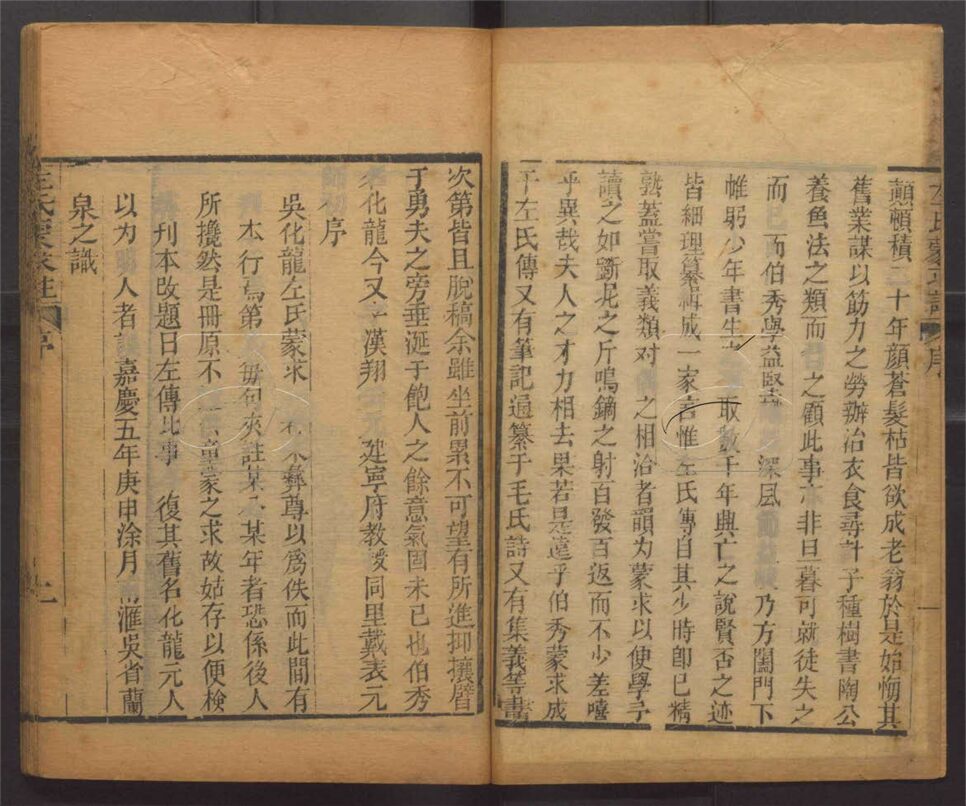 左氏蒙求註 序
顛頓積二十年顔蒼髮枯皆欲成老翁於是始悔其
舊業謀以筋力之勞辦治衣食尋計子種樹書陶公
養魚法之類而 之顧此事亦非日暮可就徒失之
而 而伯秀學益堅 深居 乃方闔門下
帷躬少年書生 取數千年興亡之說賢否之迹
皆細理纂 成一家言惟左氏傳自其少時卽已精
熟蓋嘗取義類对 之相洽者韻为蒙求以使學子
讀之如斲泥之斤鳴鏑之射百發百返而不少差嘻
乎異哉夫人之才力相去果若是遠乎伯秀蒙求成
于左氏傳又有筆記遍纂于毛氏詩又有集義等書
次第皆且脫稿余雖坐前累不可望有所進抑攘臂
于勇夫之旁垂涎于飽人之餘意氣固未已也伯秀
名化龍今又字漢翔 建寧府教授同里戴表元
帥初序
吳化龍左氏蒙求 朱彝尊以爲佚而此間有
本行爲第 每句夾註某公某年者恐係後人
所攙然是冊原不 童蒙之求故姑存以便檢
刊本改題曰左傳比事 復其舊名化龍元人
以为明人者誤嘉慶五年庚申涂月南滙吳省蘭
泉之識
左氏蒙求註 序 二